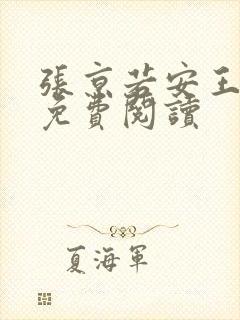 張京若安王
免費閱讀
夏海軍